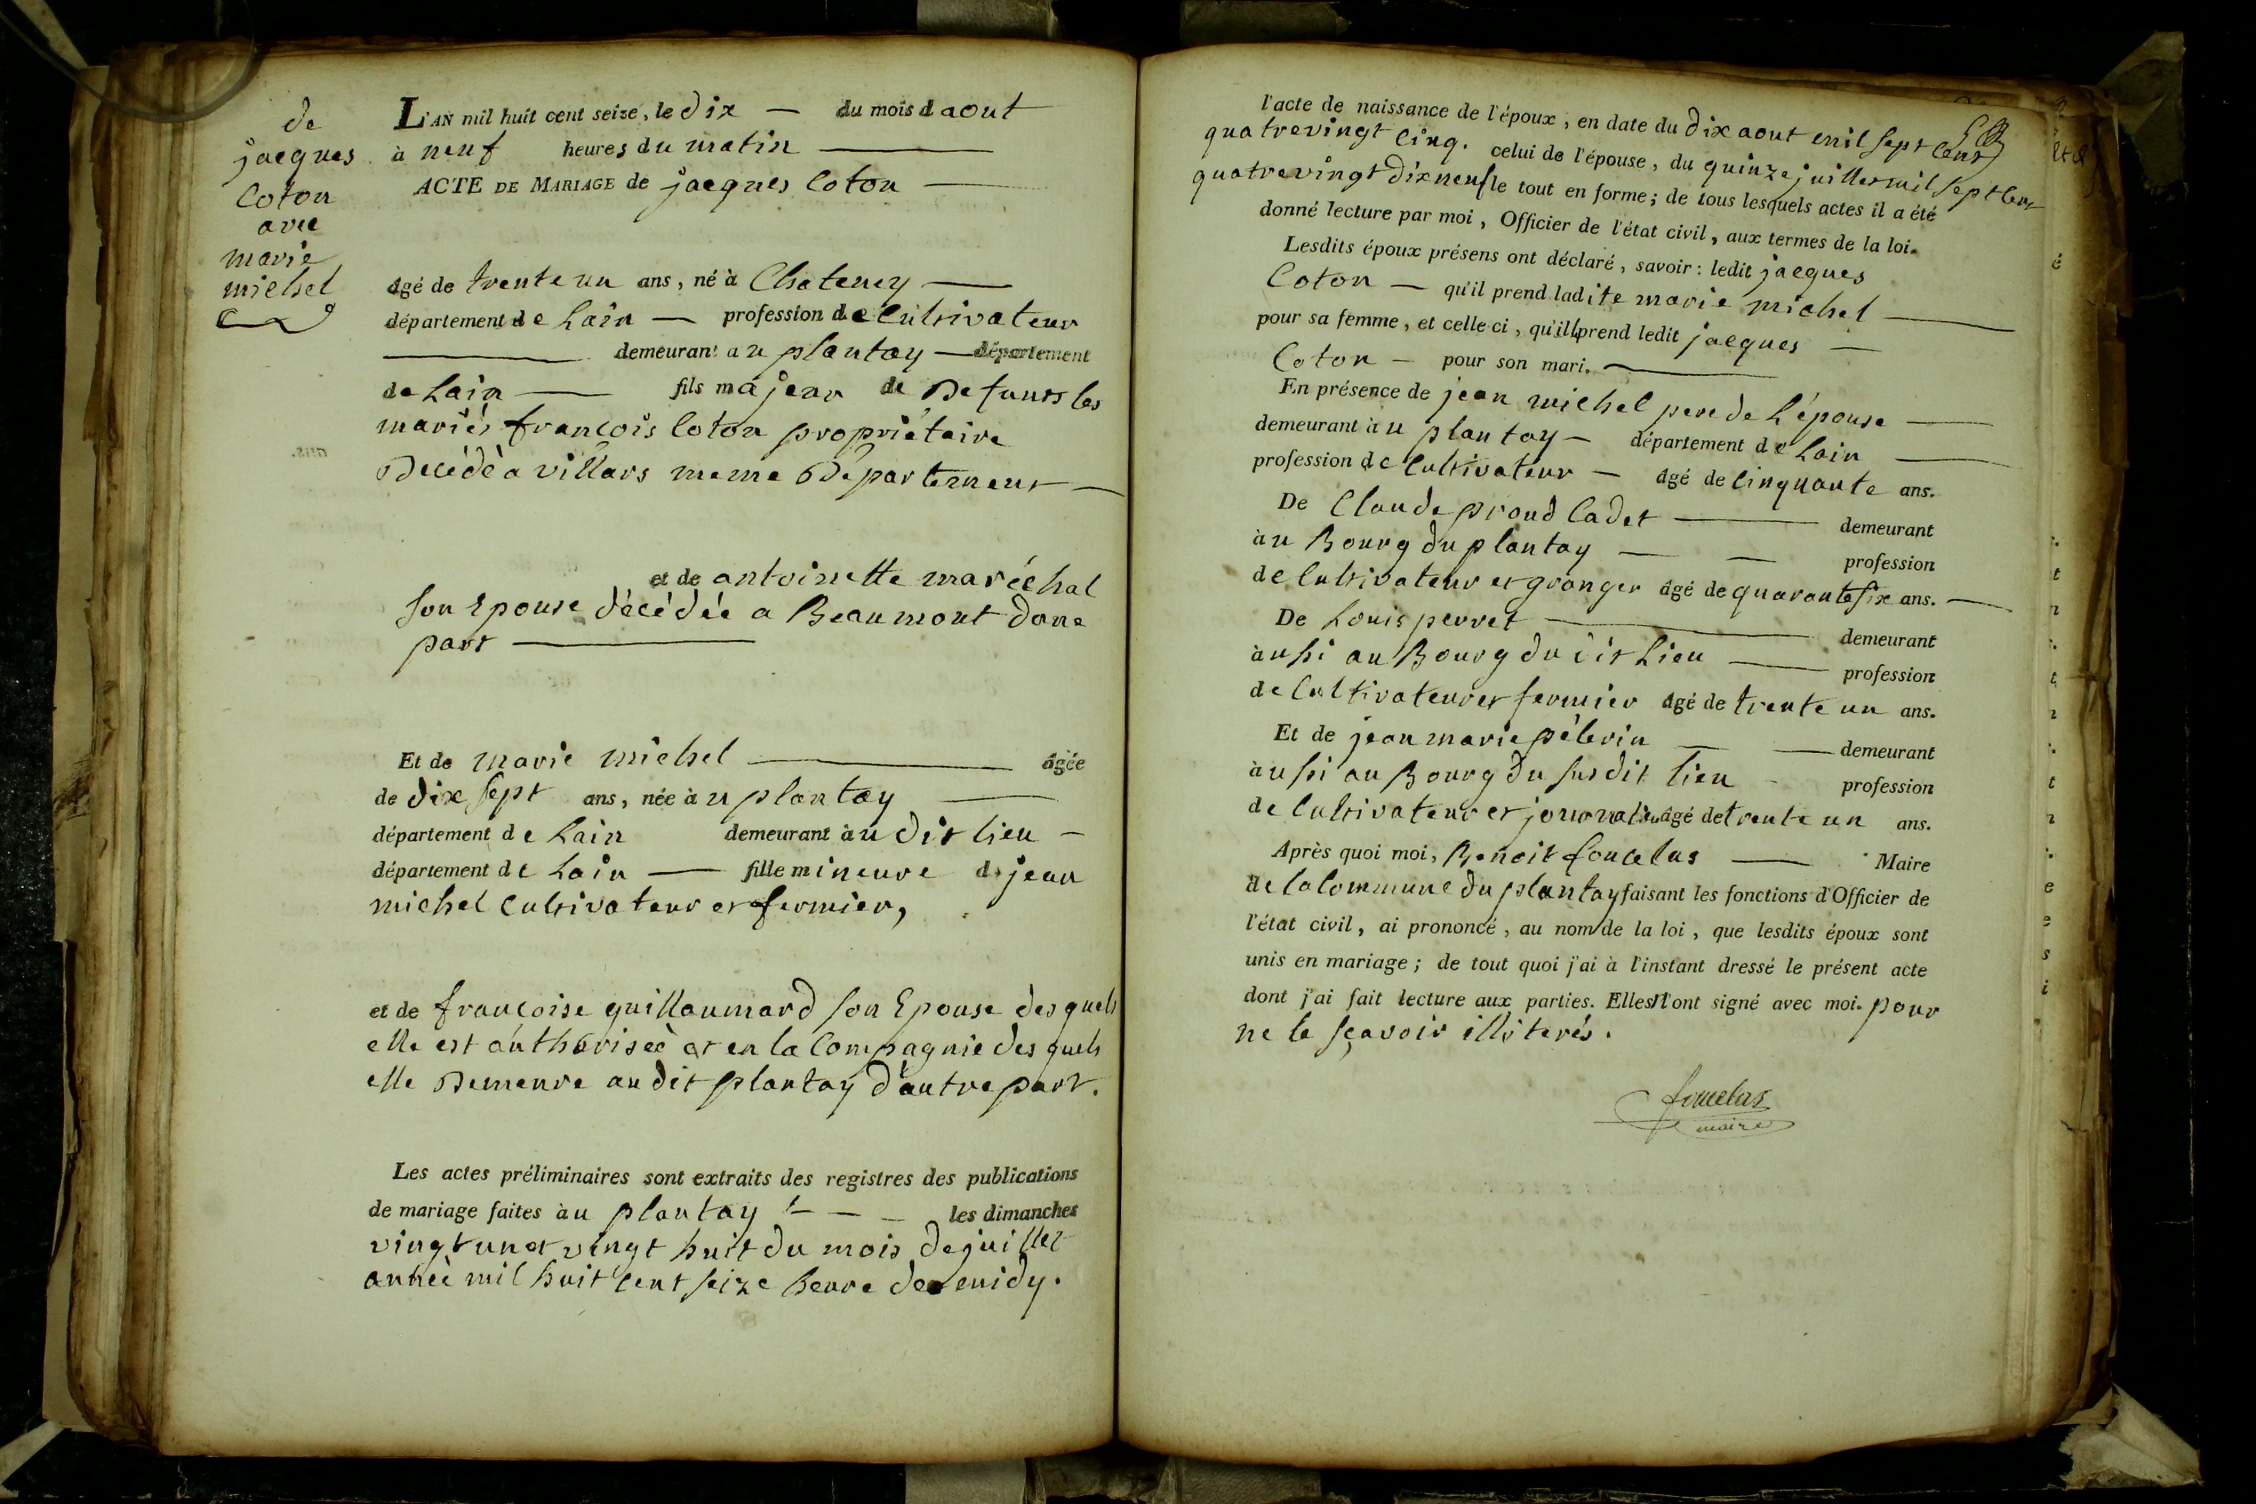 de
jacques
Coton
avec
marie
michel
L'AN mil huit cent seize, le dix — du mois d aout
à neuf heures du matin
ACTE DE MARIAGE de jacques Coton
âgé de trente un ans, né à Chateney
département de Lain — profession de Cultivateur
demeurant au plantay — département
de Lain — fils majeur de Defunts les
mariés françois Coton propriétaire
Decédè a villars meme Département
et de antoinette maréchal
son Epouse décédée a Beaumont dune
part
Et de marie michel âgée
de dix sept ans, née à u plantay
département de Lain demeurant àu dit lieu —
département de Lain — fille mineure de jean
michel Cultivateur et fermier,
et de françoise guillaumard son Epouse des quels
elle est authorisèè et en la Compagnie des quels
elle Demeure au dit plantay d'autre part.
Les actes préliminaires sont extraits des registres des publications
de mariage faites àu plantay — — les dimanches
vingt un et vingt huit du mois de juillet
annèè mil huit Cent seize heure de midy.
l'acte de naissance de l'époux, en date du dix aout mil sept Cent
quatrevingt Cinq. celui de l'épouse, du quinze juillet mil sept Cent
quatrevingt dix neuf le tout en forme; de tous lesquels actes il a été
donné lecture par moi, Officier de l'état civil, aux termes de la loi.
Lesdits époux présens ont déclaré, savoir: ledit jacques
Coton — qu'il prend ladite marie michel
pour sa femme, et celle ci, qu'ill prend ledit jacques —
Coton — pour son mari.
En présence de jean michel pere de L'épouse
demeurant àu plantay — département de Lain
profession de Cultivateur — âgé de Cinquante ans.
De Claude proud Cadet demeurant
àu Bourg du plantay — — profession
de Cultivateur et granger âgé de quarante six ans.
De Louis perret demeurant
àussi au Bourg du dit Lieu profession
de Cultivateur et fermier âgé de trente un ans.
Et de jean marie pèlerin — — demeurant
àussi au Bourg du susdit lieu - profession
de Cultivateur et journalier âgé de trente un ans.
Après quoi moi, Benoit foucelas — Maire
de la Commune du plantay faisant les fonctions d'Officier de
l'état civil, ai prononcé, au nom de la loi, que lesdits époux sont
unis en mariage; de tout quoi j'ai à l'instant dressé le présent acte
dont j'ai fait lecture aux parties. Elles n'ont signé avec moi. pour
ne le sçavoir illiterés.
foucelas
maire